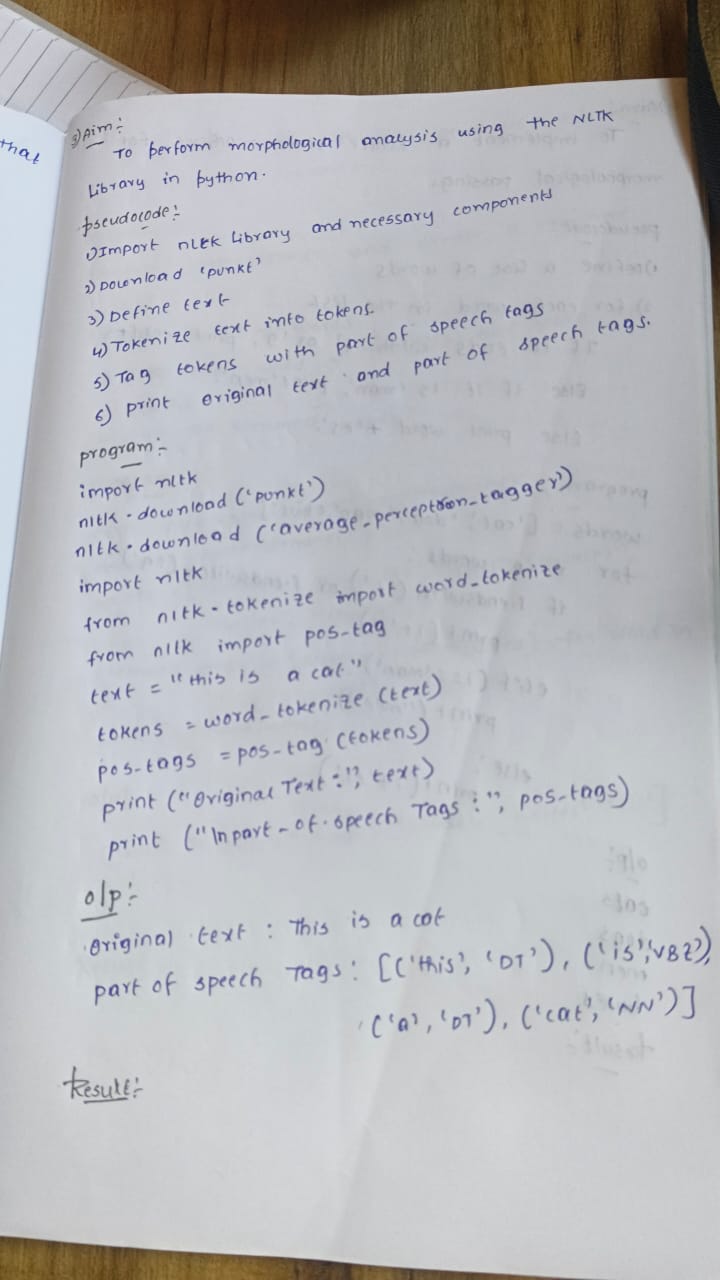 that
3) Aim:
To perform morphological analysis using the NLTK
Library in python.
pseudocode:
1) Import nltk Library and necessary components
2) Download 'punkt'
3) Define text
4) Tokenize text into tokens.
5) Tag tokens with part of speech tags
6) print original text and part of speech tags.
program:
import nltk
nltk.download('punkt')
nltk.download('average_perceptron_tagger')
import nltk
from nltk.tokenize import word_tokenize
from nltk import pos_tag
text = "this is a cat"
tokens = word_tokenize (text)
pos_tags = pos_tag (tokens)
print ("Original Text:", text)
print ("\n part-of-speech Tags:", pos_tags)
o/p:
original text : This is a cat
part of speech Tags: [('this', 'DT'), ('is','VBZ'),
('a', 'DT'), ('cat', 'NN')]
Result: